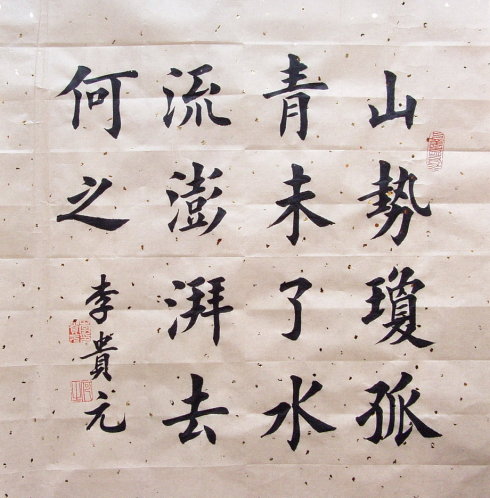 山势瓊孤
青未了水
流澎湃去
何之
李貴元